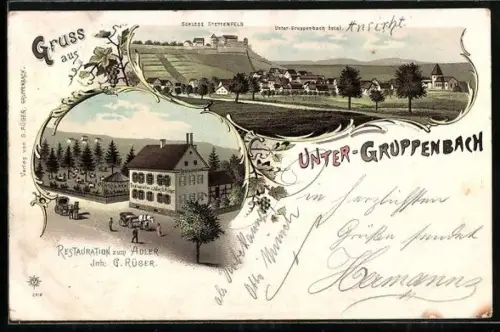 Gruss
aus
SCHLOSS STETTENFELS
Unter-Gruppenbach total.
Ansicht
Verlag von G. RÜGER, GRUPPENBACH.
UNTER-GRUPPENBACH
RESTAURATION ZUM ADLER
Inh: G. RÜGER.
in herzlichsten
Grüßen sendet
Hermann
als
Otto Münch